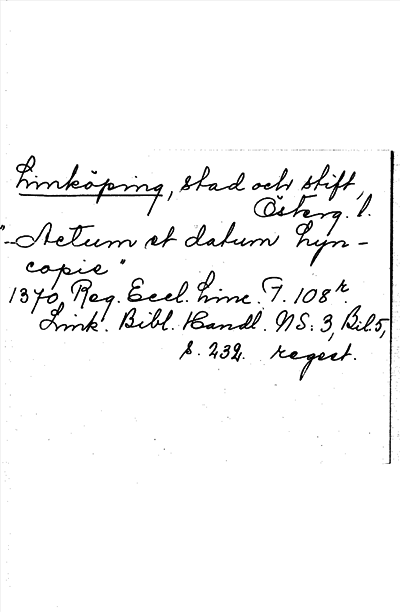 Linköping, stad och stift,
Österg. l.
"--Actum et datum Lyn-
copie"
1370, Reg. Eccl. Linc. F. 108 r.
Link. Bibl. Handl. NS: 3, Bil. 5,
s. 232. regest.